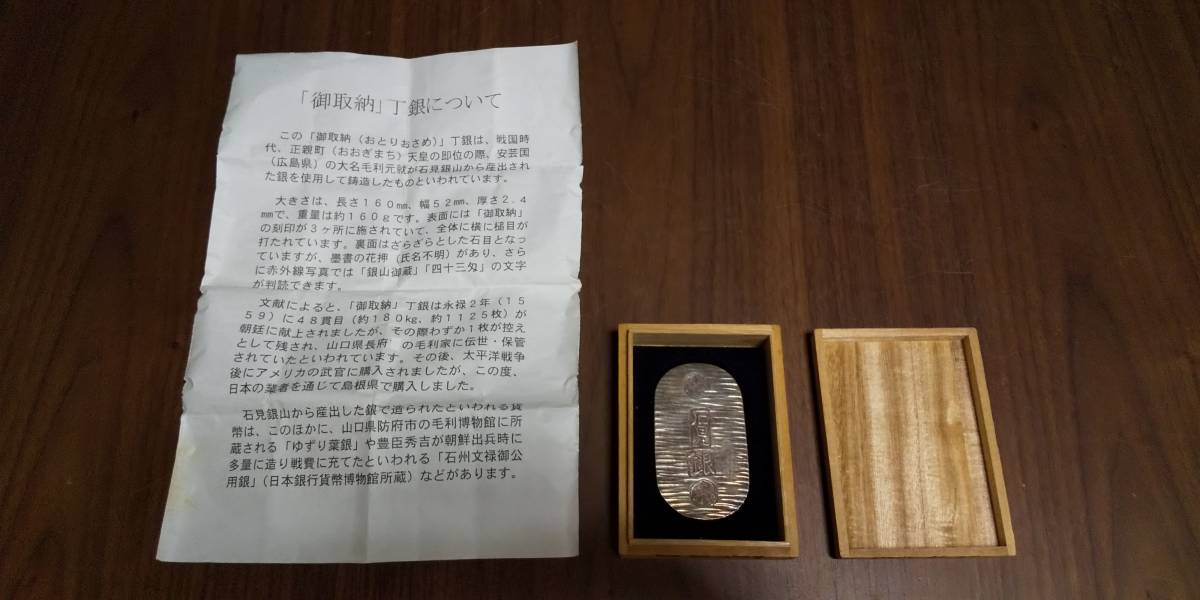 「御取納」丁銀について
この「御取納(おとりおさめ)」丁銀は、戦国時
代、正親町(おおぎまち)天皇の即位の際、安芸国
(広島県)の大名毛利元就が石見銀山から産出され
た銀を使用して鋳造したものといわれています。
大きさは、長さ160㎜、幅52㎜、厚さ2.4
㎜で、重量は約160gです。表面には「御取納」
の刻印が3ヶ所に施されていて、全体に横に槌目が
打たれています。裏面はざらざらとした石目となっ
ていますが、墨書の花押(氏名不明)があり、さら
に赤外線写真では「銀山御蔵」「四十三匁」の文字
が判読できます。
文献によると、「御取納」丁銀は永禄2年(15
59)に48貫目(約180㎏、約1125枚)が
朝廷に献上されましたが、その際わずか1枚が控え
として残され、山口県長府の毛利家に伝世・保管
されていたといわれています。その後、太平洋戦争
後にアメリカの武官に購入されましたが、この度、
日本の業者を通じて島根県で購入しました。
石見銀山から産出した銀で造られたといわれる貨
幣は、このほかに、山口県防府市の毛利博物館に所
蔵される「ゆずり葉銀」や豊臣秀吉が朝鮮出兵時に
多量に造り戦費に充てたといわれる「石州文禄御公
用銀」(日本銀行貨幣博物館所蔵)などがあります。
銀